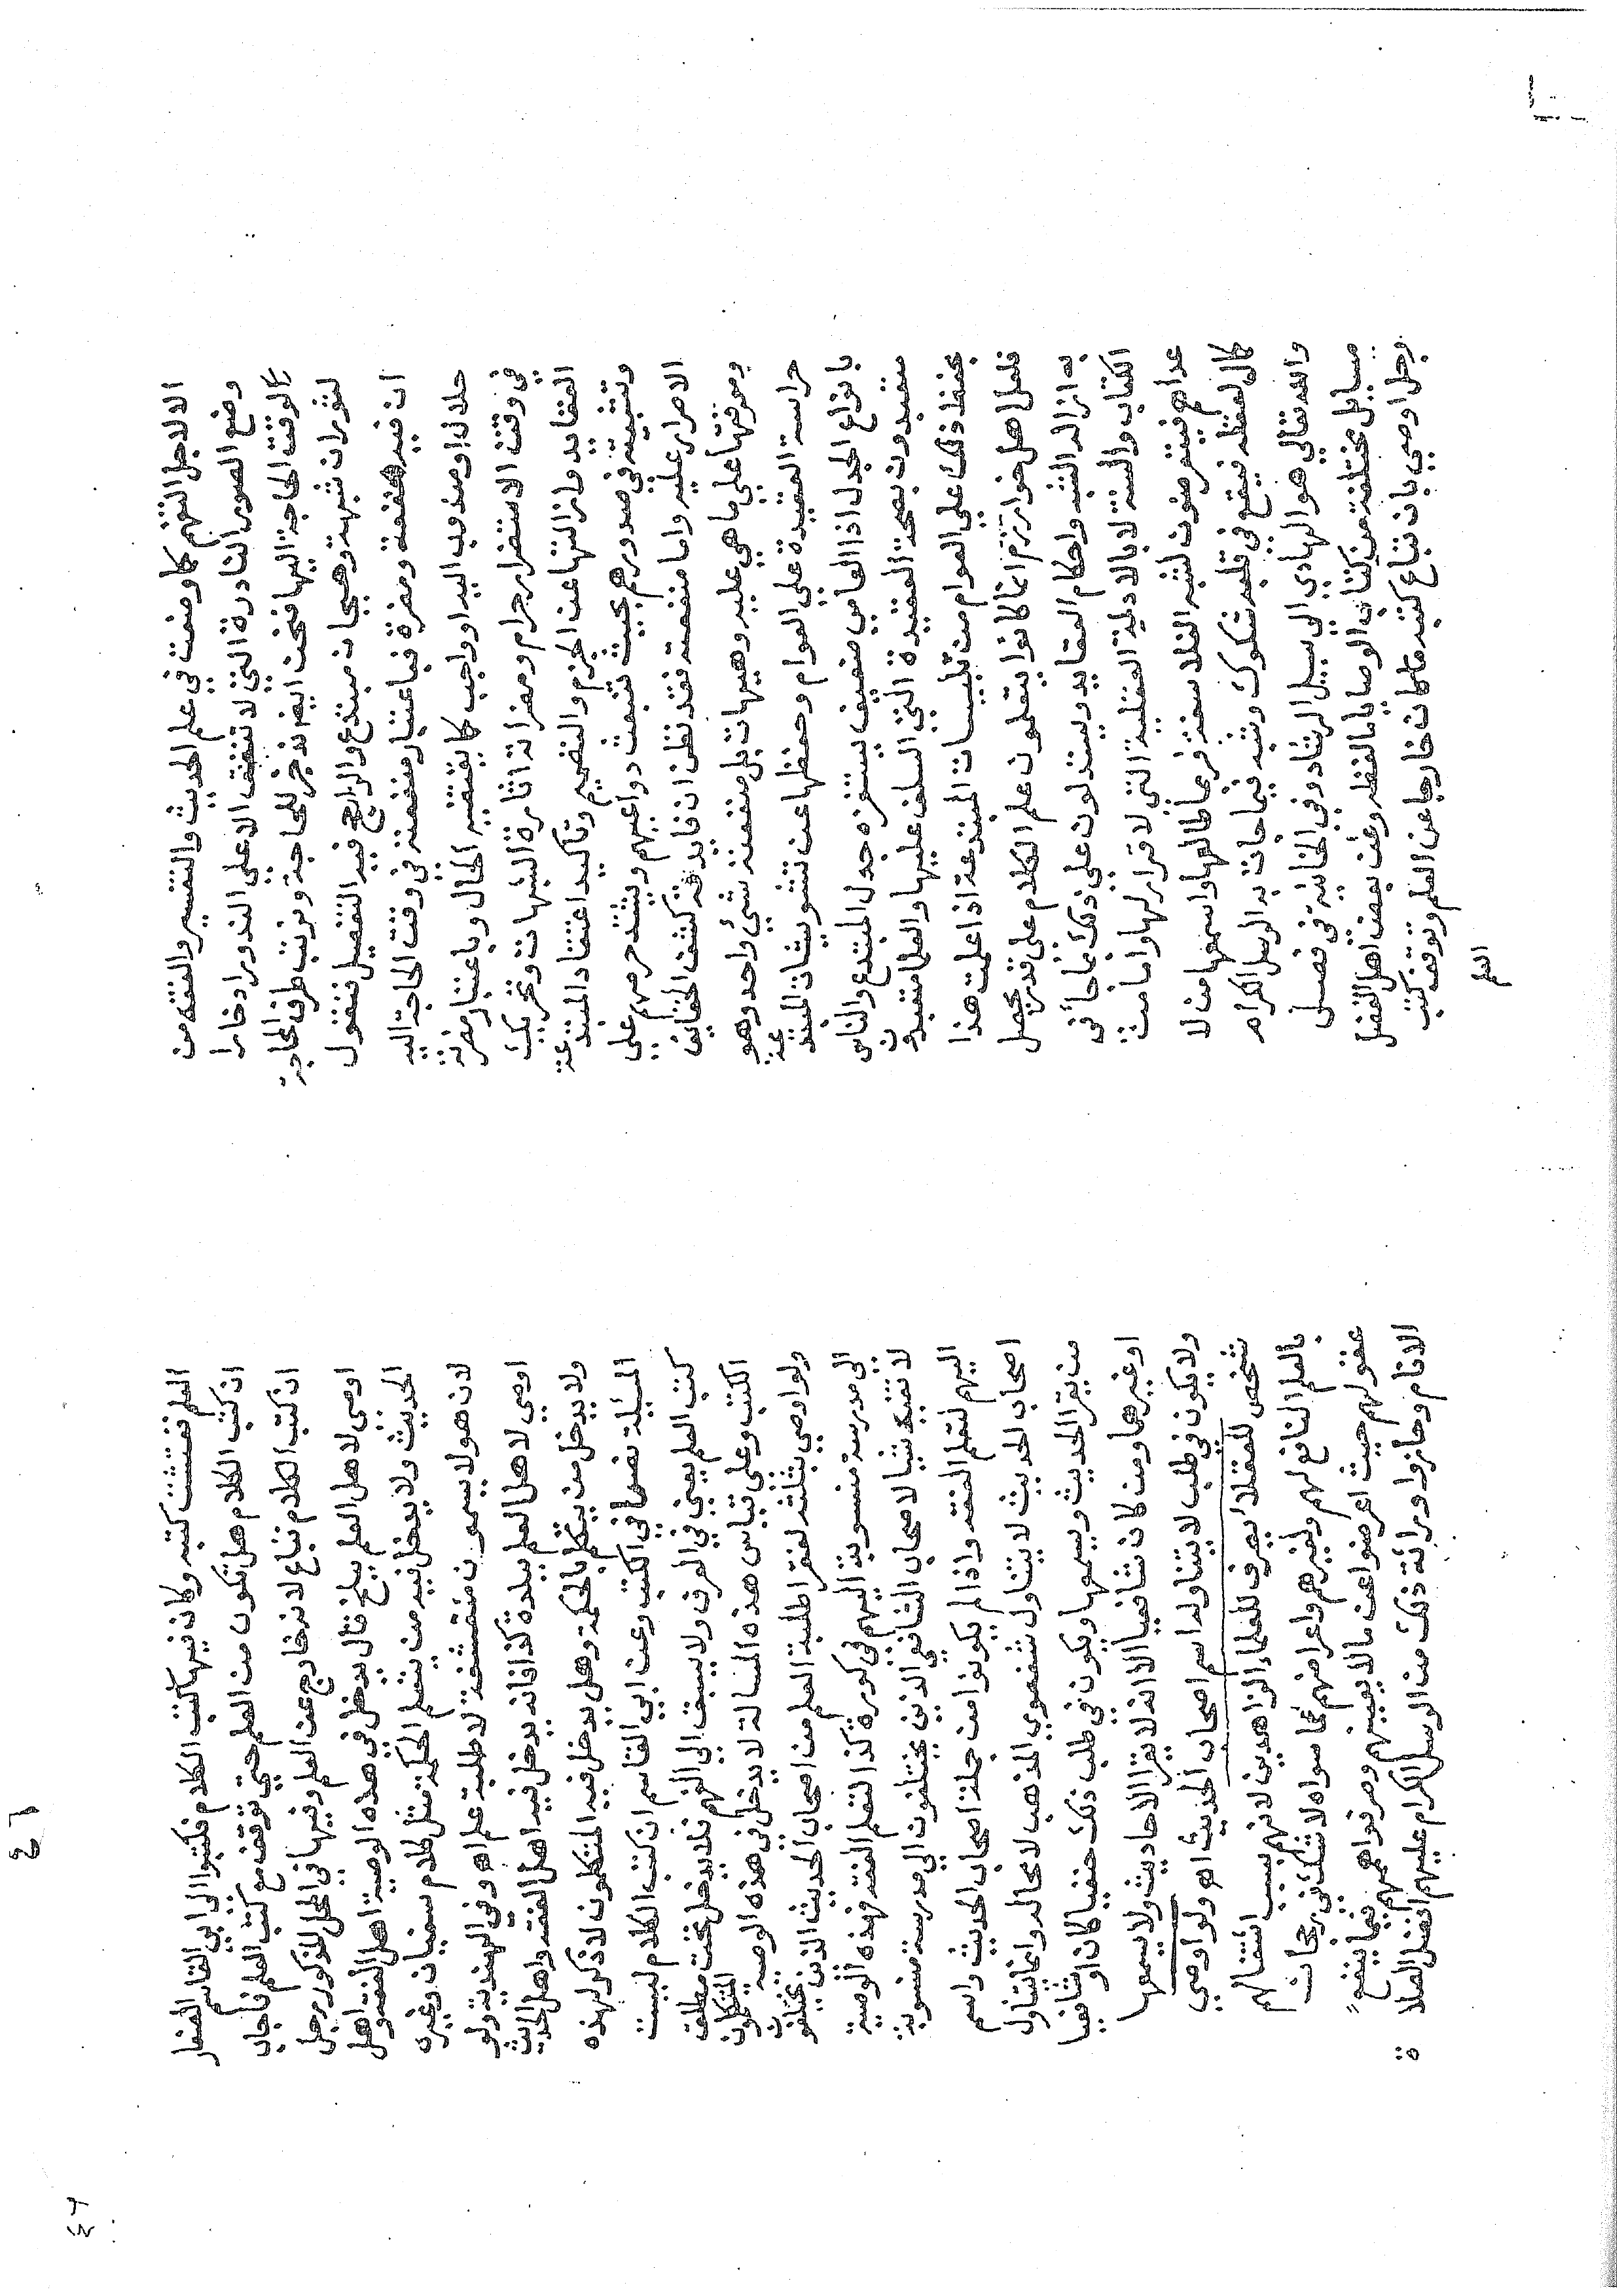 الا لاجل التفهم كما وضعت في علم الحديث والتفسير والفقه من
وضع الصور النادرة التي لا تتفق الا على الندور ادخارا
لوقت الحاجة اليها فنحن ايضا ندخر للحاجة ونرتب طرق المحاجة
لثوران شبهة وهيجان مبتدع والراجح فيه التفصيل فنقول
ان فيه منفعة ومضرة فباعتبار منفعته في وقت الحاجة اليه
حلال او مندوب اليه او واجب كما يقتضيه الحال وباعتبار مضرته
في وقت الاستضرار حرام ومضراته اثارة الشبهات وتحريك
العقايد وازالتها عن الجزم والتصميم وتاكيد اعتقاد المبتدعة
وتثبيته في صدورهم بحيث تنبعث دواعيهم ويشتد حرصهم على
الاصرار عليه واما منفعته فقد نظن ان فايدته كشف الحقايق
ومعرفتها على ما هي عليه وهيهات بل منفعته شيء واحد وهو
حراسة العقيدة على العوام وحفظها عن تشويشات المبتدعة
بانواع الجدل اذ العامي ضعيف يستفزه جدل المبتدع والناس
متعبدون بصحة العقيدة التي السلف عليها والعلما متعبدون
بحفظ ذلك على العوام من تلبيسات المبتدعة اذا علمت هذا
فلعل اهل خوارزم انما كانوا يتعلمون علم الكلام على قدر يحصل
به ازالة الشبه واحكام العقايد ويستدلون على ذلك بما جا في
الكتاب والسنة لا بالادلة العقلية التي لا قرار لها واما من
عداهم فيتعرضون لشبه الفلاسفة فربما طالعها واسمعها من لا
كمال لعقله فيقع في قلبه شكوك وشبه فيما جات به الرسل الكرام
والله تعالى هو الهادي الى سبيل الرشاد وفي الخانية في فصل
مسايل مختلفة من كتاب الوصايا ما لفظه وعن بعض اهل الفضل
رجل اوصى بان تباع كتبه ما كان خارجا عن العلم وتوقف كتب
العلم
العلم ففتشت كتبه وكان فيها كتب الكلام فكتبوا الى ابي القاسم الصفار
ان كتب الكلام هل تكون من العلم حتى توقف مع كتب العلم فاجاب
ان كتب الكلام تباع لانه خارج عن العلم وفيها في المحل المذكور رجل
اوصى لاهل العلم ببلخ قال يدخل في هذه الوصية اهل الفقه واهل
الحديث ولا يدخل فيه من يتعلم الحكمة مثل كلام سفيان وغيره
لان هولا يسمون متقشفة لا طلبة علم اه وفي الهندية ولو
اوصى لاهل العلم ببلدة كذا فانه يدخل فيه اهل الفقه واهل الحديث
ولا يدخل من يتكلم بالحكمة وهل يدخل فيه المتكلمون لا ذكر لهذه
المسيلة نصا في الكتب وعن ابي القاسم ان كتب الكلام ليست
كتب العلم يعني في العرف ولا يسبق الى الفهم فلا يدخل تحت مطلق
الكتب وعلى قياس هذه المسالة لا يدخل في هذه الوصية المتكلمون
ولو اوصى بثلثه لفقرا طلبة العلم من اصحاب الحديث الذين يختلفون
الى مدرسة منسوبة اليهم في كورة كذا لتعلم الفقه فهذه الوصية
لا تتقيد شيا لاصحاب الشافعي الذين يختلفون الى مدرسة منسوبة
اليهم لتعلم الفقه واذا لم يكونوا من جملة اصحاب الحديث واسم
اصحاب الحديث لا يتناول شفعوي المذهب لا محالة وانما يتناول
من يقرا الحديث ويسمعها ويكون في طلب ذلك حنفيا كان او شافعيا
او غيرهما ومن كان شافعيا الا انه لا يقرا الاحاديث ولا يسمعها
ولا يكون في طلب لا يتناوله اسم اصحاب الحديث اه ولو اوصى
شخص للعقلا يصرف للعلما الزاهدين لانهم بسبب اشتغالهم
بالعلم النافع لهم ولغيرهم واعراضهم عما سواه لا شك في رجحان
عقولهم حيث اعرضوا عن ما لا يعنيهم وصرفوا همهم فيما ينفع
الانام وحازوا وراثة ذلك من الرسل الكرام عليهم افضل الصلاة